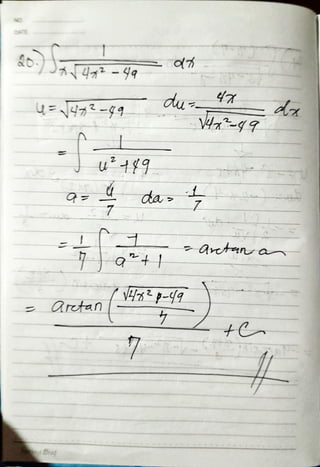 NO.
DATE
20.) ∫ 1 / (x√(4x² - 49)) dx
u = √(4x² - 49) du = 4x / √(4x² - 49) dx
= ∫ 1 / (u² + 49)
a = u / 7 da = 1 / 7
= 1/7 ∫ 1 / (a² + 1) = arctan a
= arctan (√(4x² - 49) / 7) / 7 + C